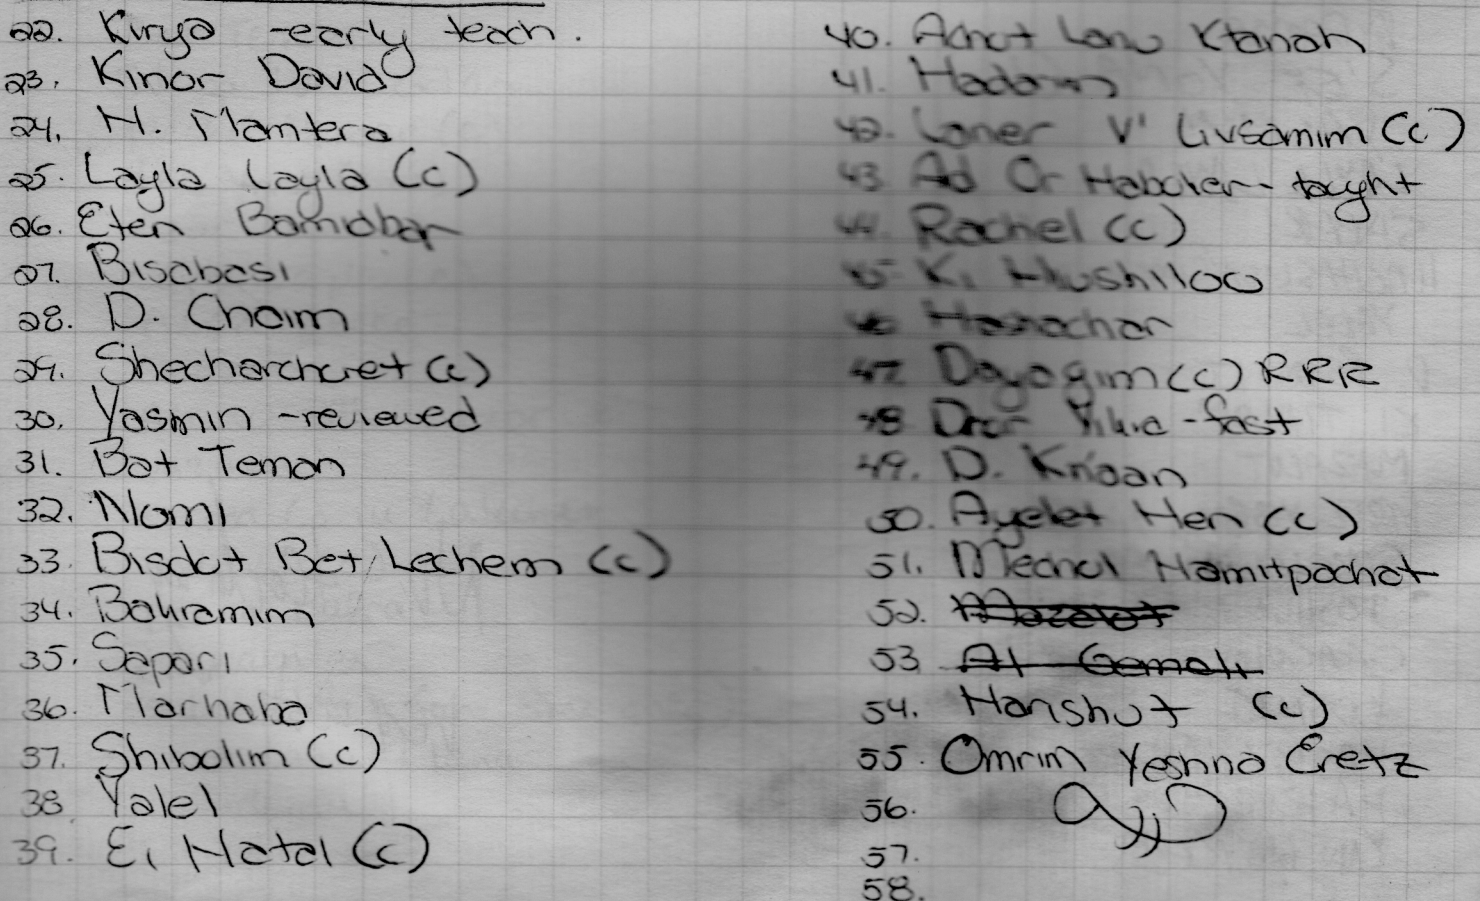 22. Kirya -early teach.
23. Kinor David
24. H. Mamtera
25. Layla Layla (c)
26. Eten Bamidbar
27. Bisabasi
28. D. Chaim
29. Shecharchoret (c)
30. Yasmin -reviewed
31. Bat Teman
32. Nomi
33. Bisdot Bet Lechem (c)
34. Bahramim
35. Sapari
36. Marhaba
37. Shibolim (c)
38 Yalel
39. Ei Hatal (c)
40. Achot Lanu Ktanah
41. Hadarim
42. Laner V' Livsamim (c)
43 Ad Or Haboker- taught
44. Rachel (c)
45 Ki Hushiloo
46 Hasnachar
47 Dayagim (c) RRR
48 Dror Yikra -fast
49. D. Knaan
50. Ayelet Hen (c)
51. Mechol Hamitpachot
52.
53 At Gemali
54. Hanshut (c)
55. Omrim Yeshna Eretz
56.
57.
58.